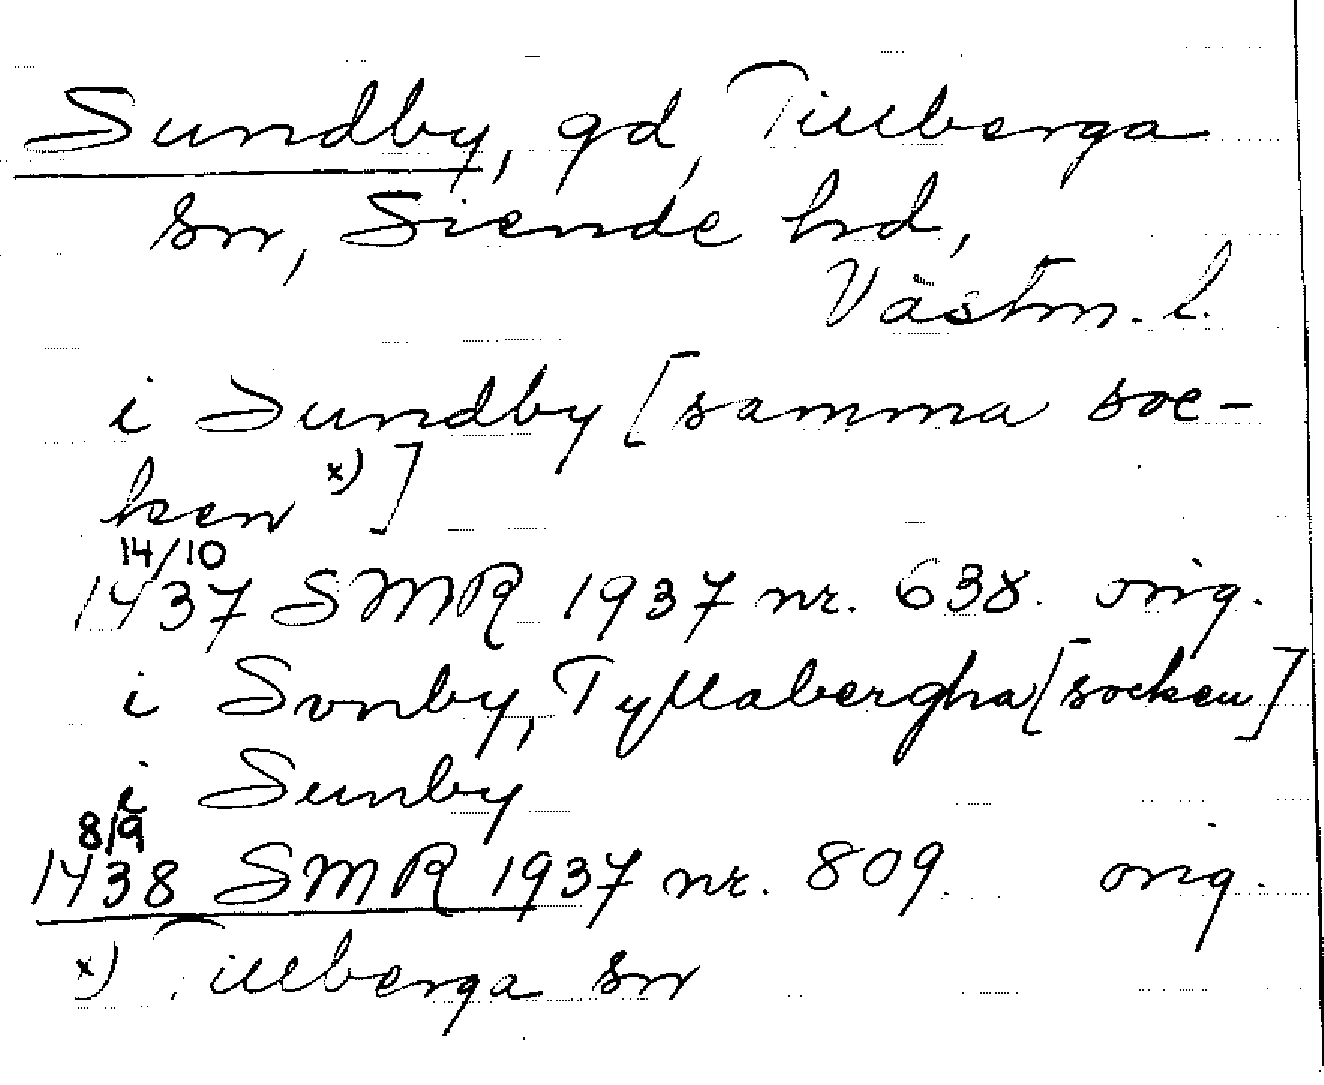 Sundby, gd, Tillberga
sn, Siende hd,
Västm. l.
i Sundby [samma soc-
ken x)]
14/10
1437 SMR 1937 nr. 638. orig.
i Svnby, Tyllabergha [socken]
i Sunby
8/9
1438 SMR 1937 nr. 809. orig.
x) Tillberga sn